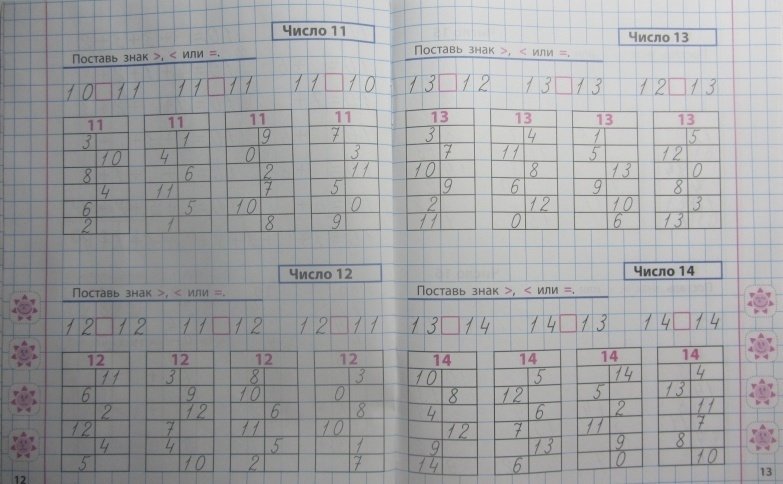 Число 11
Поставь знак >, < или =.
10 □ 11 11 □ 11 11 □ 10
11 11 11 11
3 1 9 7
10 4 0 3
8 6 2 11
4 11 7 5
6 5 10 0
2 1 8 9
Число 12
Поставь знак >, < или =.
12 □ 12 11 □ 12 12 □ 11
12 12 12 12
11 3 8 3
6 9 10 0
2 12 6 8
12 7 11 10
4 4 5 1
5 10 2 7
12
Число 13
Поставь знак >, < или =.
13 □ 12 13 □ 13 12 □ 13
13 13 13 13
3 4 1 5
7 11 5 12
10 8 13 0
9 6 9 8
2 12 10 3
11 0 6 13
Число 14
Поставь знак >, < или =.
13 □ 14 14 □ 13 14 □ 14
14 14 14 14
10 5 14 4
8 12 5 13
4 6 2 11
12 7 11 7
9 13 9 8
14 6 0 10
13